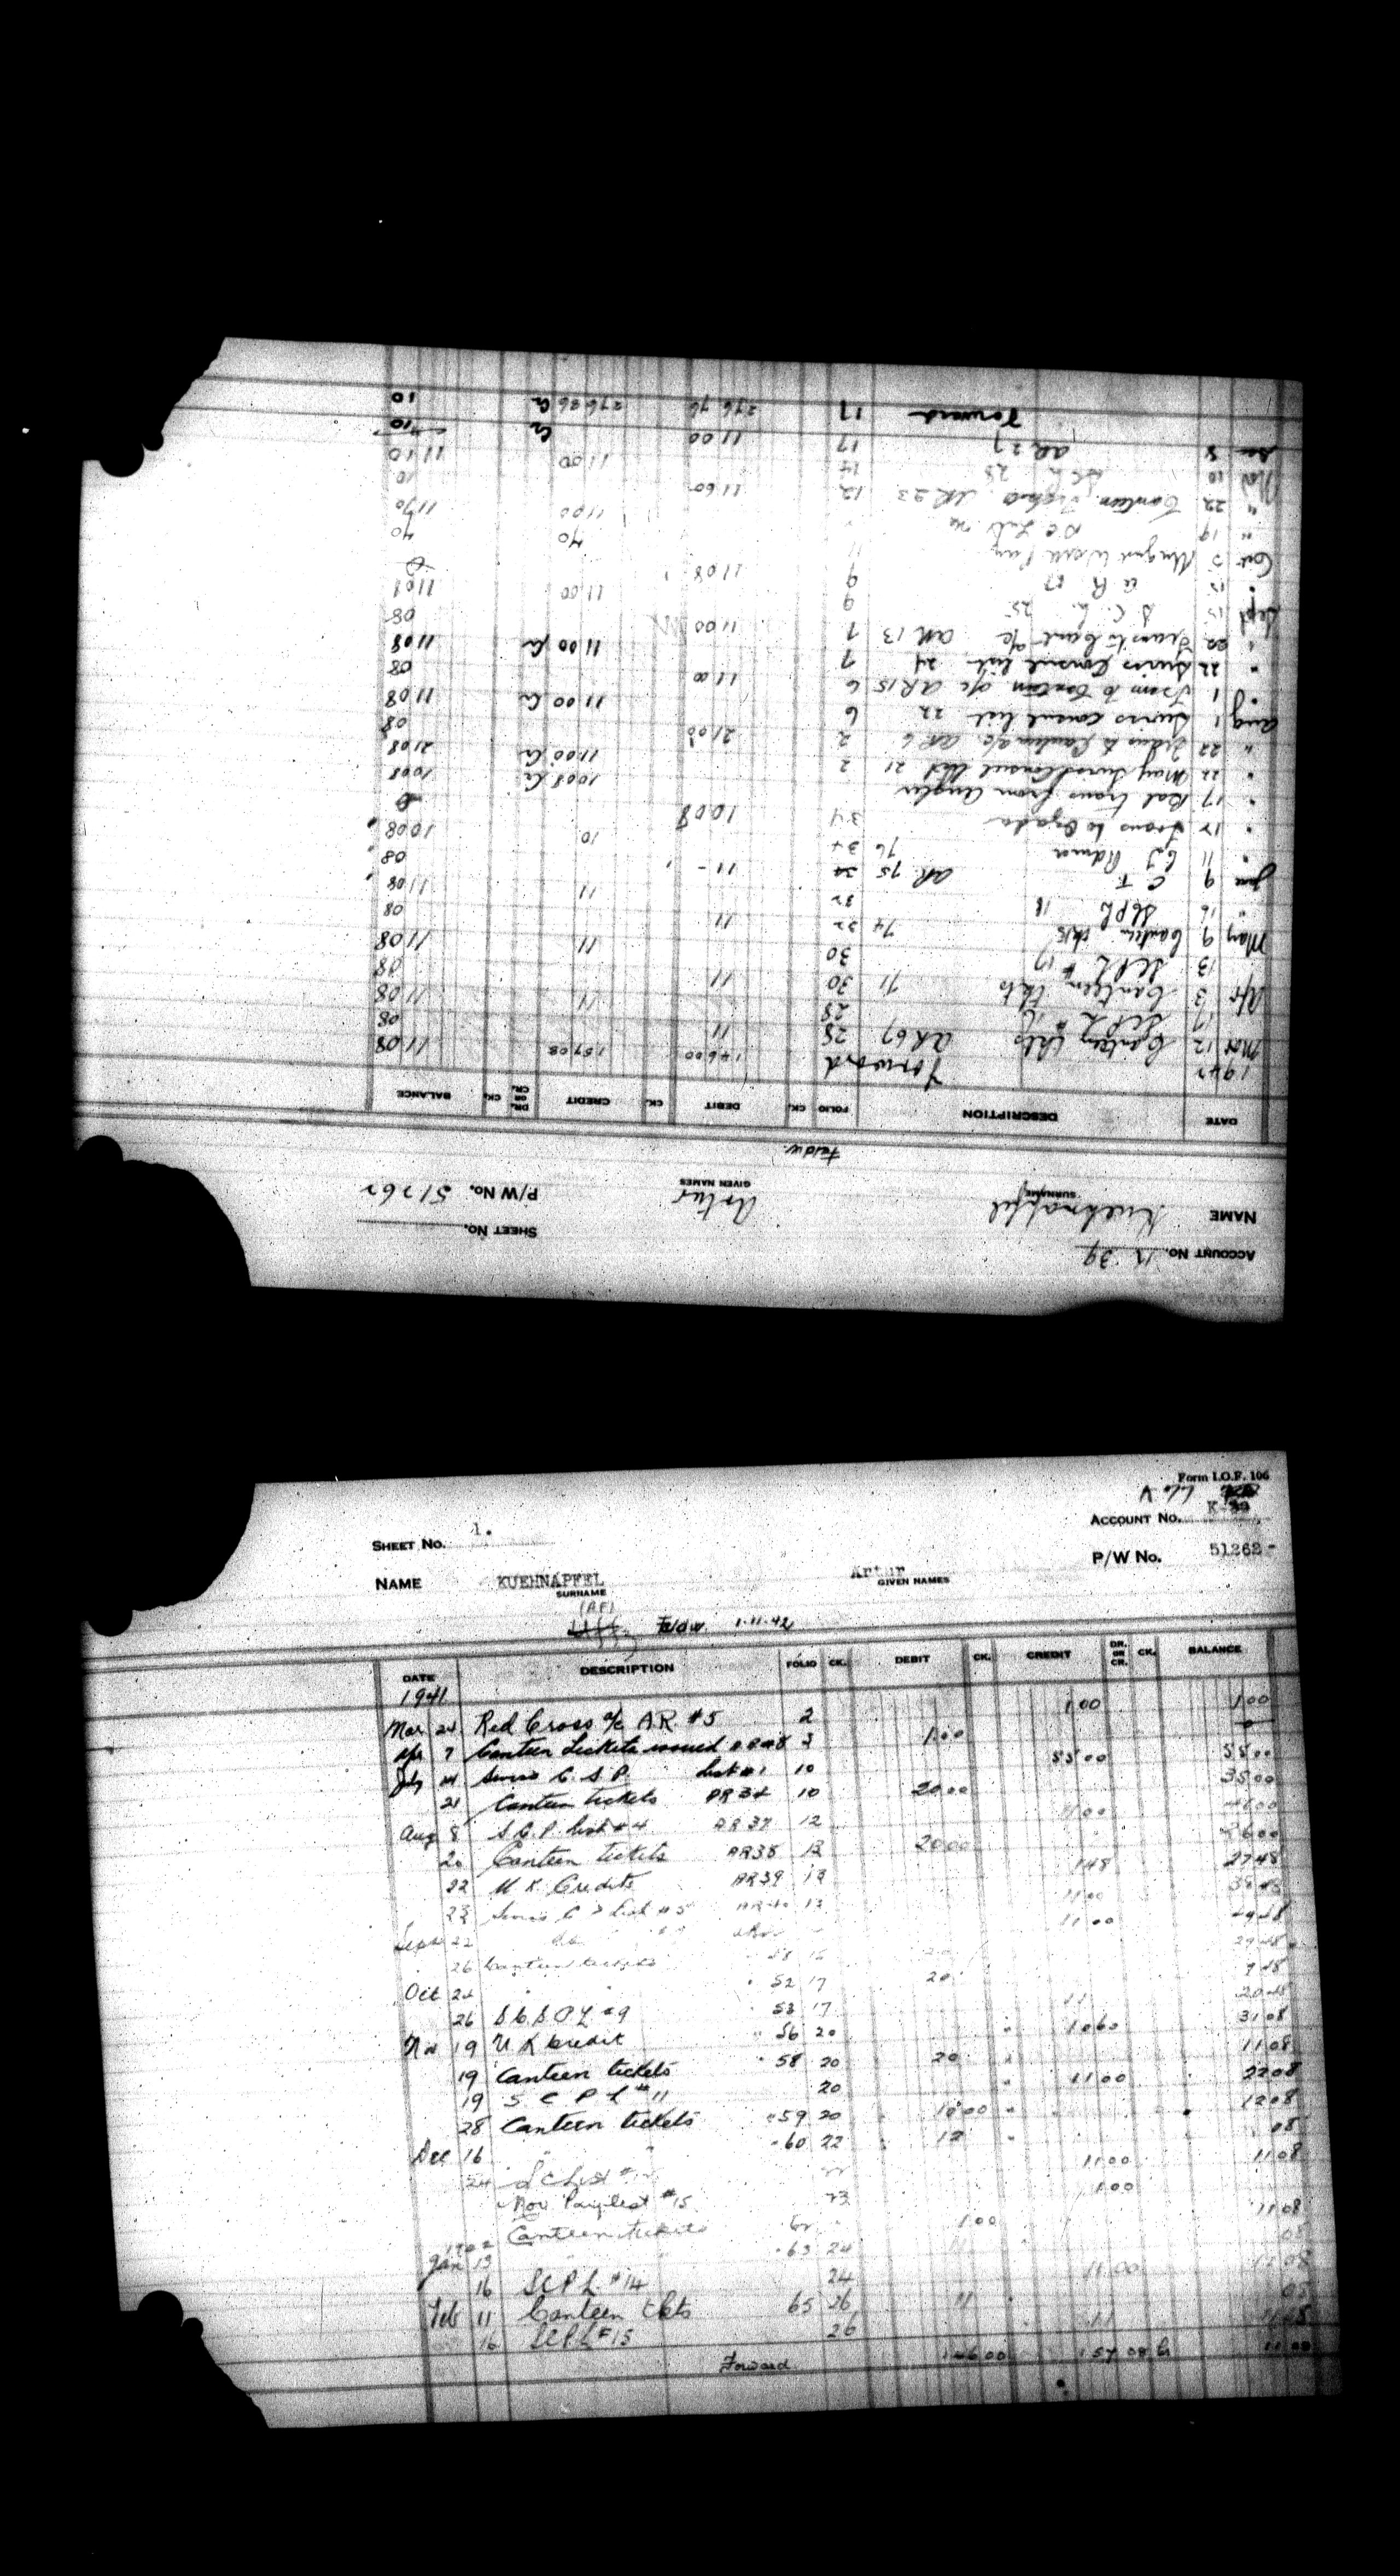 ACCOUNT No. K 39
SHEET No.
NAME Kuehnapfel Artur P/W No. 51262
SURNAME GIVEN NAMES
Feldw.
DATE DESCRIPTION FOLIO CK. DEBIT CK. CREDIT DR. OR CR. CK. BALANCE
1942 Forward 146 00 157 08 11 08
Mar 12 Canteen tkts AR 67 28 11 08
17 SCPL # 16 28 11 11 08
Apr 3 Canteen tkts 71 30 11 08
13 SCPL # 17 30 11 11 08
May 9 Canteen tkts 74 32 11 08
" 16 SCPL 18 32 11 11 08
June 9 C T. AR 75 34 11 - 08
" 11 76 34 10 10 08
" 12 Trans to 34 10 08 0
" 17 Bal trans from Angler 10 08 Cr 10 08
" 22 May Swiss Consul list 21 2 11 00 Cr 21 08
" 22 Trans to Canteen a/c. AR 6 2 21 00 08
Aug 1 Swiss Consul list 22 6 11 00 Cr 11 08
" 1 Trans to Canteen a/c AR 15 6 11 00 08
" 22 Swiss Consul list 24 7 11 00 Cr 11 08
" 22 Trans to Cant a/c AR 13 7 11 00 08
Sept 15 S. C. L. 25 9 11 00 11 08
" 15 9 11 08 0
Oct 5 August Work Pay 11 70 70
" 19 11 00 11 70
" 22 Canteen Tickets AR 23 12 11 60 10
Nov 10 28 14 11 00 11 10
Dec 8 AR 27 17 11 00 Cr 10
Forward 17 276 76 276 86 Cr 10
Form I.O.F. 106
SHEET No. 1. ACCOUNT No. K-39
P/W No. 51262-
NAME KUEHNAPFEL Artur
SURNAME GIVEN NAMES
(AF)
Feldw. 1-11-42
DATE DESCRIPTION FOLIO CK. DEBIT CK. CREDIT DR. OR CR. CK. BALANCE
1941
Mar 24 Red Cross a/c A.R. #5 2 1 00 1 00
Apr 7 Canteen Tickets issued AR #8 3 1 00 0
July 14 Swiss C. S. P. List #1 10 55 00 55 00
21 Canteen tickets AR 34 10 20 00 35 00
Aug 8 S.C.P. list #4 AR 37 12 11 00 46 00
20 Canteen tickets AR 38 12 20 00 26 00
22 U K Credits AR 39 13 1 48 27 48
23 Swiss C P list #5 AR 40 13 11 00 38 48
Sept 22 11 00 49 48
26 Canteen tickets 16 20 29 48
Oct 24 " " 52 17 20 9 48
26 S.C.S.P L #9 53 17 11 20 48
Nov 19 U K Credit " 56 20 10 60 31 08
19 Canteen tickets " 58 20 20 11 08
19 S C P L #11 20 11 00 22 08
28 Canteen tickets " 59 20 10 00 12 08
Dec 16 " " 60 22 12 08
24 S C List 11 00 11 08
Nov Paylist #15 23 1 00
Canteen tickets 1 00 11 08
1942
Jan 13 " " 63 24 11 08
16 SCPL #14 24 11 00 11 08
Feb 11 Canteen tkts 65 26 11 08
16 SCPL #15 26 11 11 08
Forward 146 00 157 08 Cr 11 08